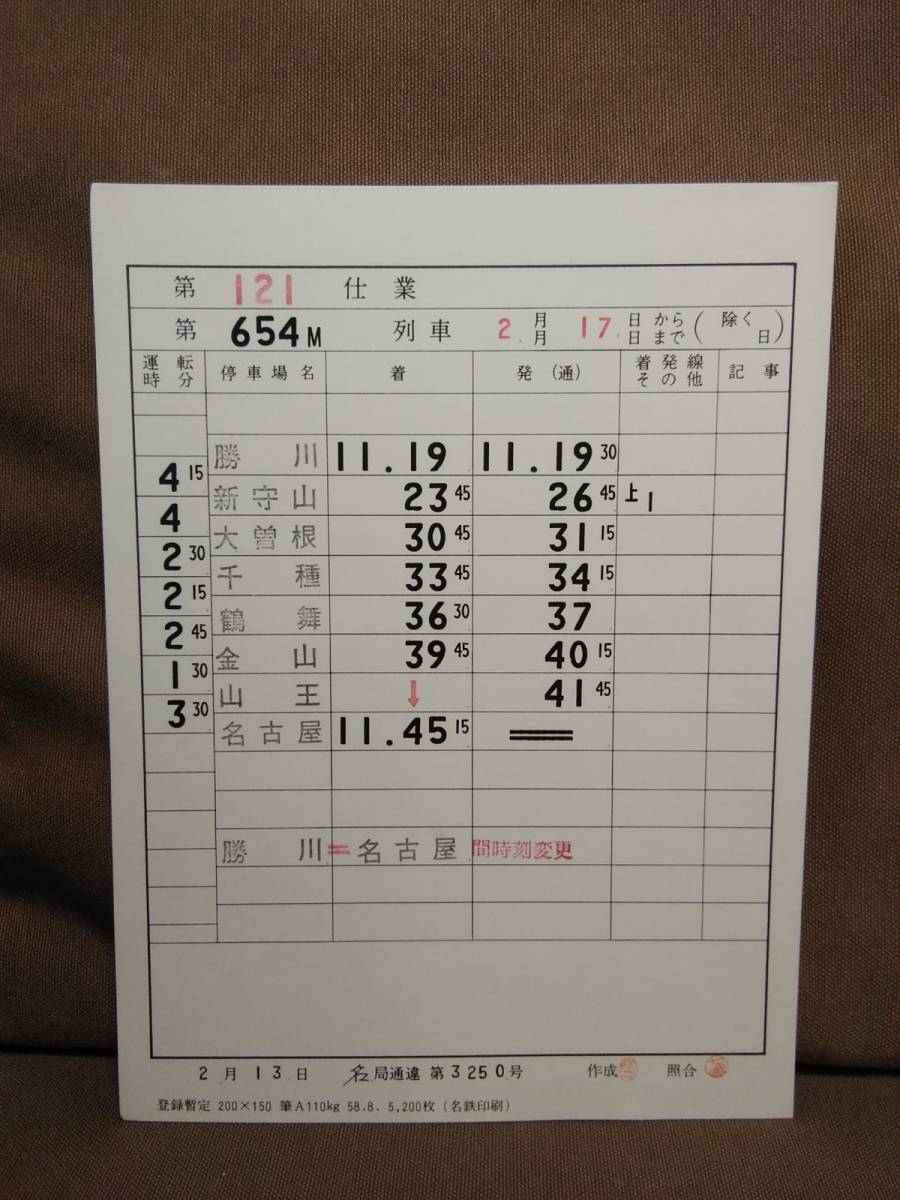 第 121 仕業
第 654M 列車 2月 月 17.日から 日まで(除く 日)
運転時分 停車場名 着 発(通) 着発線その他 記事
勝川 11.19 11.19 30
4 15
新守山 23 45 26 45 上1
4
大曽根 30 45 31 15
2 30
千種 33 45 34 15
2 15
鶴舞 36 30 37
2 45
金山 39 45 40 15
1 30
山王 ↓ 41 45
3 30
名古屋 11.45 15 ═
勝川=名古屋 間時刻変更
2月13日 名局通達 第3250号 作成 照合
登録暫定 200×150 筆A110kg 58.8. 5,200枚(名鉄印刷)